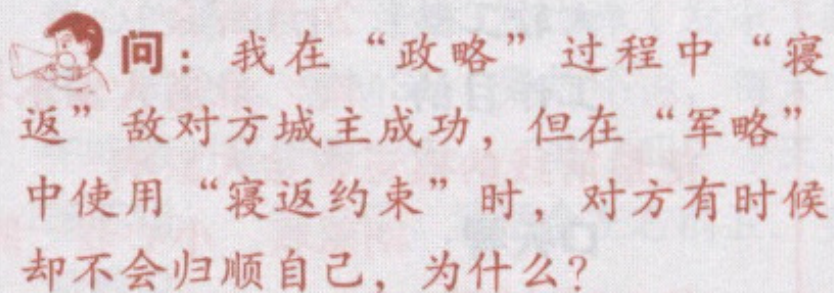 问：我在“政略”过程中“寝
返”敌对方城主成功，但在“军略”
中使用“寝返约束”时，对方有时候
却不会归顺自己，为什么？